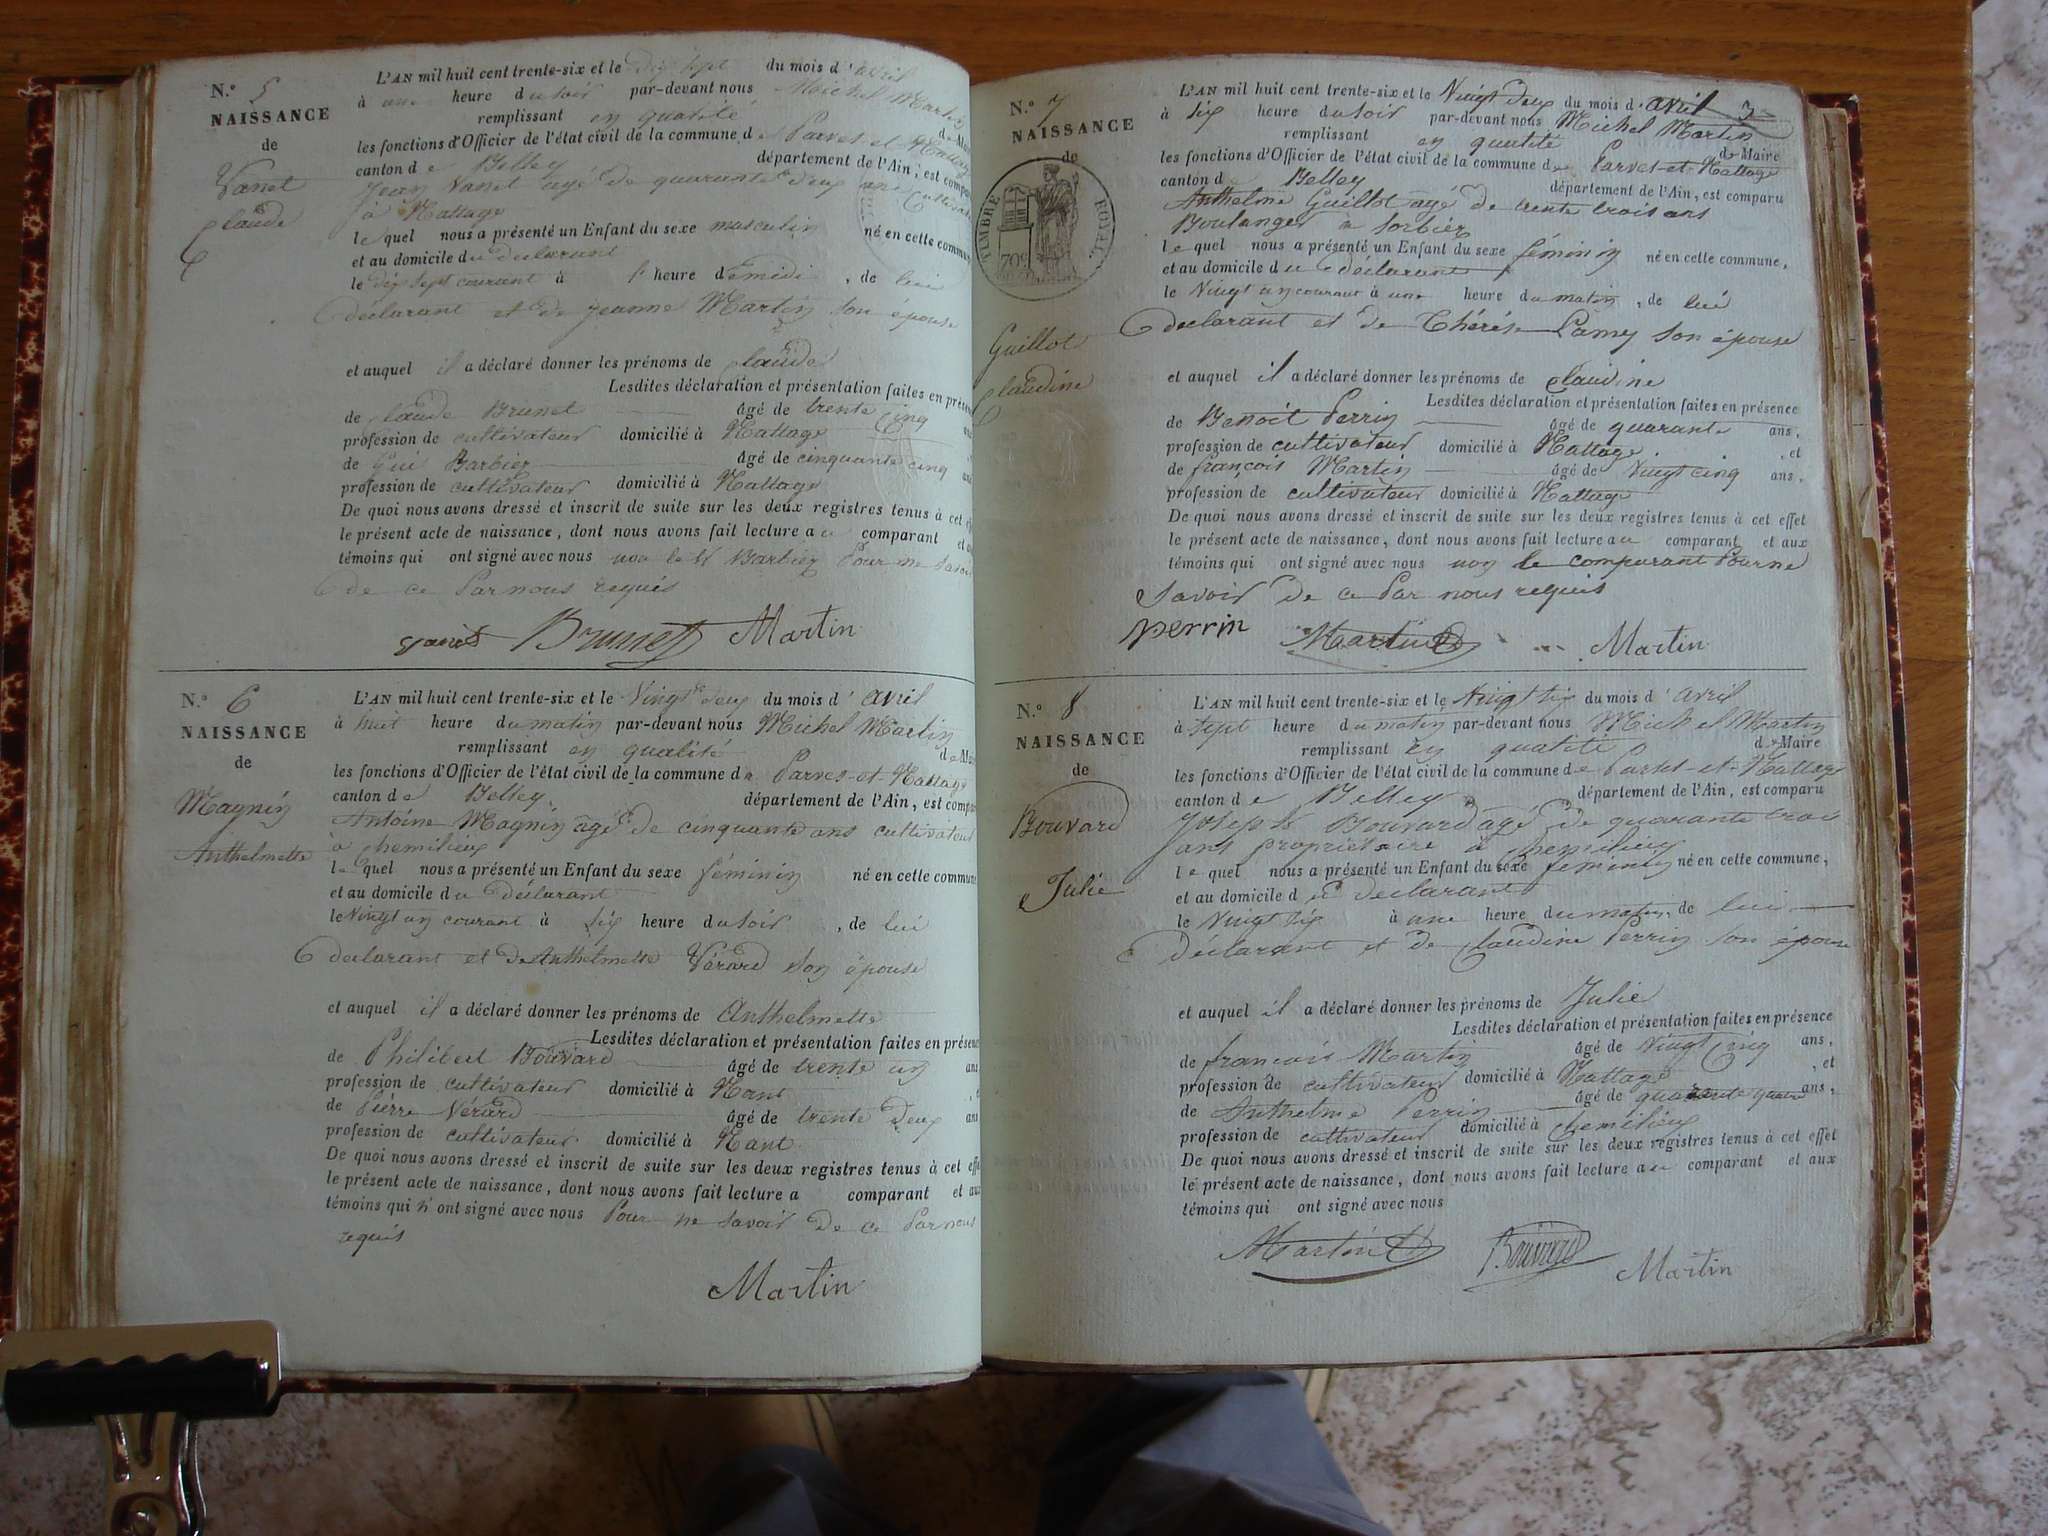 N.° 5
NAISSANCE
de
Vanet
Claude
L'AN mil huit cent trente-six et le dix sept du mois d'avril
à une heure du soir par-devant nous Michel Martin
remplissant en qualité de Mai
les fonctions d'Officier de l'état civil de la commune de Parves et Nattage
canton de Belley département de l'Ain, est compa
Jean Vanet agé de quarante deux ans Cultivate
à Nattage
lequel nous a présenté un Enfant du sexe masculin né en cette commu
et au domicile du declarant
le dix sept courant à l'heure de midi, de lui
declarant et de jeanne Martin son épouse
et auquel il a déclaré donner les prénoms de Claude
Lesdites déclaration et présentation faites en prése
de Claude Brunet âgé de trente cinq ans
profession de cultivateur domicilié à Nattage
de Gui Barbier âgé de cinquante cinq ans
profession de cultivateur domicilié à Nattage
De quoi nous avons dressé et inscrit de suite sur les deux registres tenus à cet e
le présent acte de naissance, dont nous avons fait lecture au comparant et a
témoins qui ont signé avec nous non le Barbier Pour ne savoir
de ce Par nous requis
Brunet Martin
N.° 6
NAISSANCE
de
Magnin
Anthelmette
L'AN mil huit cent trente-six et le Vingt deux du mois d'avril
à huit heure du matin par-devant nous Michel Martin
remplissant en qualité de Mai
les fonctions d'Officier de l'état civil de la commune de Parves-et-Nattage
canton de Belley département de l'Ain, est compa
Antoine Magnin âgé de cinquante ans cultivateur
à chemilieu
lequel nous a présenté un Enfant du sexe féminin né en cette commune
et au domicile du Déclarant
le Vingt un courant à six heure du soir, de lui
declarant et de Anthelmette Vérard son épouse
et auquel il a déclaré donner les prénoms de Anthelmette
Lesdites déclaration et présentation faites en présenc
de Philibert Bouvard âgé de trente un ans
profession de cultivateur domicilié à Nant
de Pierre Vérard âgé de trente deux ans
profession de cultivateur domicilié à Nant
De quoi nous avons dressé et inscrit de suite sur les deux registres tenus à cet effe
le présent acte de naissance, dont nous avons fait lecture a comparant et aux
témoins qui n'ont signé avec nous Pour ne savoir de ce Par nous
requis
Martin
3
N.° 7
NAISSANCE
de
TIMBRE ROYAL
70c
Guillot
Claudine
L'AN mil huit cent trente-six et le Vingt deux du mois d'avril
à six heure du soir par-devant nous Michel Martin
remplissant en qualité de Maire
les fonctions d'Officier de l'état civil de la commune de Parves-et-Nattage
canton de Belley département de l'Ain, est comparu
Anthelme Guillot agé de trente trois ans
Boulanger à Sorbier
lequel nous a présenté un Enfant du sexe féminin né en cette commune,
et au domicile du déclarant
le Vingt un courant à une heure du matin, de lui
declarant et de Thérèse Lamy son épouse
et auquel il a déclaré donner les prénoms de Claudine
Lesdites déclaration et présentation faites en présence
de Benoit Perrin âgé de quarante ans,
profession de cultivateur domicilié à Nattage, et
de françois Martin âgé de Vingt cinq ans,
profession de cultivateur domicilié à Nattage
De quoi nous avons dressé et inscrit de suite sur les deux registres tenus à cet effet
le présent acte de naissance, dont nous avons fait lecture au comparant et aux
témoins qui ont signé avec nous non le comparant Pour ne
Savoir de ce Par nous requis
perrin Martin Martin
N.° 8
NAISSANCE
de
Bouvard
Julie
L'AN mil huit cent trente-six et le Vingt six du mois d'avril
à sept heure du matin par-devant nous Michel Martin
remplissant en qualité de Maire
les fonctions d'Officier de l'état civil de la commune de Parves-et-Nattage
canton de Belley département de l'Ain, est comparu
Joseph Bouvard agé de quarante trois
ans propriétaire à chemilieu
lequel nous a présenté un Enfant du sexe féminin né en cette commune,
et au domicile du declarant
le Vingt six à une heure du matin, de lui
Déclarant et de Claudine Perrin son épouse
et auquel il a déclaré donner les prénoms de Julie
Lesdites déclaration et présentation faites en présence
de francois Martin âgé de Vingt cinq ans,
profession de cultivateur domicilié à Nattage, et
de Anthelme Perrin âgé de quarante ans,
profession de cultivateur domicilié à chemilieu
De quoi nous avons dressé et inscrit de suite sur les deux registres tenus à cet effet
le présent acte de naissance, dont nous avons fait lecture au comparant et aux
témoins qui ont signé avec nous
Martin Bouvard Martin